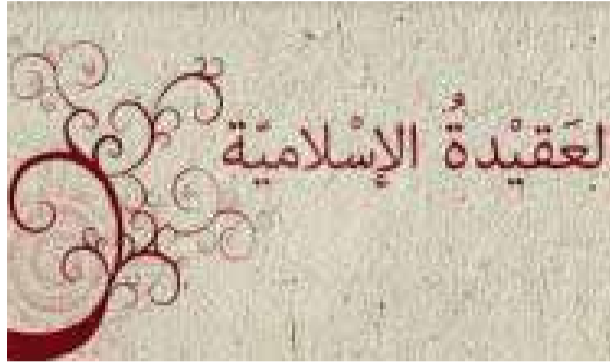 لعَقيْدةُ الإسْلاميّة